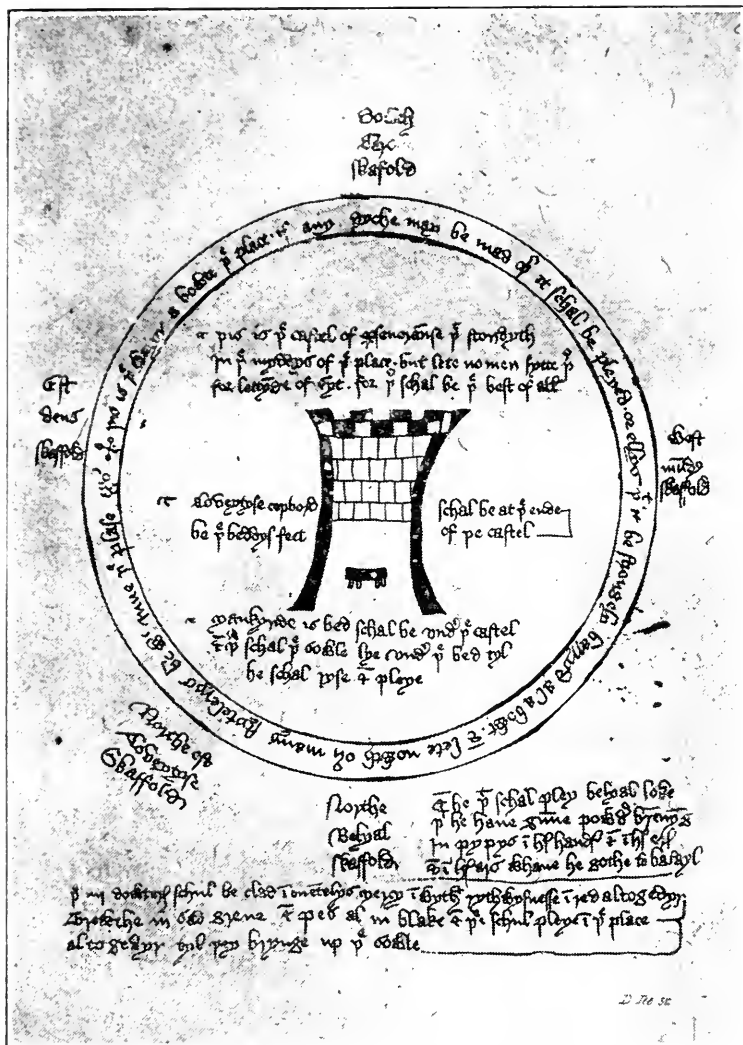 Sowth
Caro
skafold
þis is þe watyr a bowte þe place if any dyche may be mad þer it schal be pleyed or ellys þat it be strongely barryd al a bowt & lete nowth ouyr many stytelerys be wyth Inne þe plase
þis is þe castel of perseueraunse þat stondyth
In þe myddys of þe place but lete no men sytte þer
for lettynge of syt for þer schal be þe best of all
Est
deus
skaffold
West
mundus
skaffold
Coveytyse copbord
be þe beddys feet
schal be at þe ende
of þe castel
Mankynde is bed schal be vndyr þe castel
& þer schal þe sowle lye vndyr þe bed tyl
he schal ryse & pleye
Northe est
Coveytyse
Skaffold
Northe
Belyal
skaffold
& he þat schal pley belyal loke
þat he haue gunne powdyr brennyng
In pypys in hys handys & in hys erys
& in hys ars whanne he gothe to batayl
þe iiij dowterys schul be clad in mentelys Mercy in wyth rythwysnesse in red altogedyr
Trewthe in sad grene & Pes al in blake & þei schul pleye in þe place
altogedyr tyl þey brynge up þe sowle